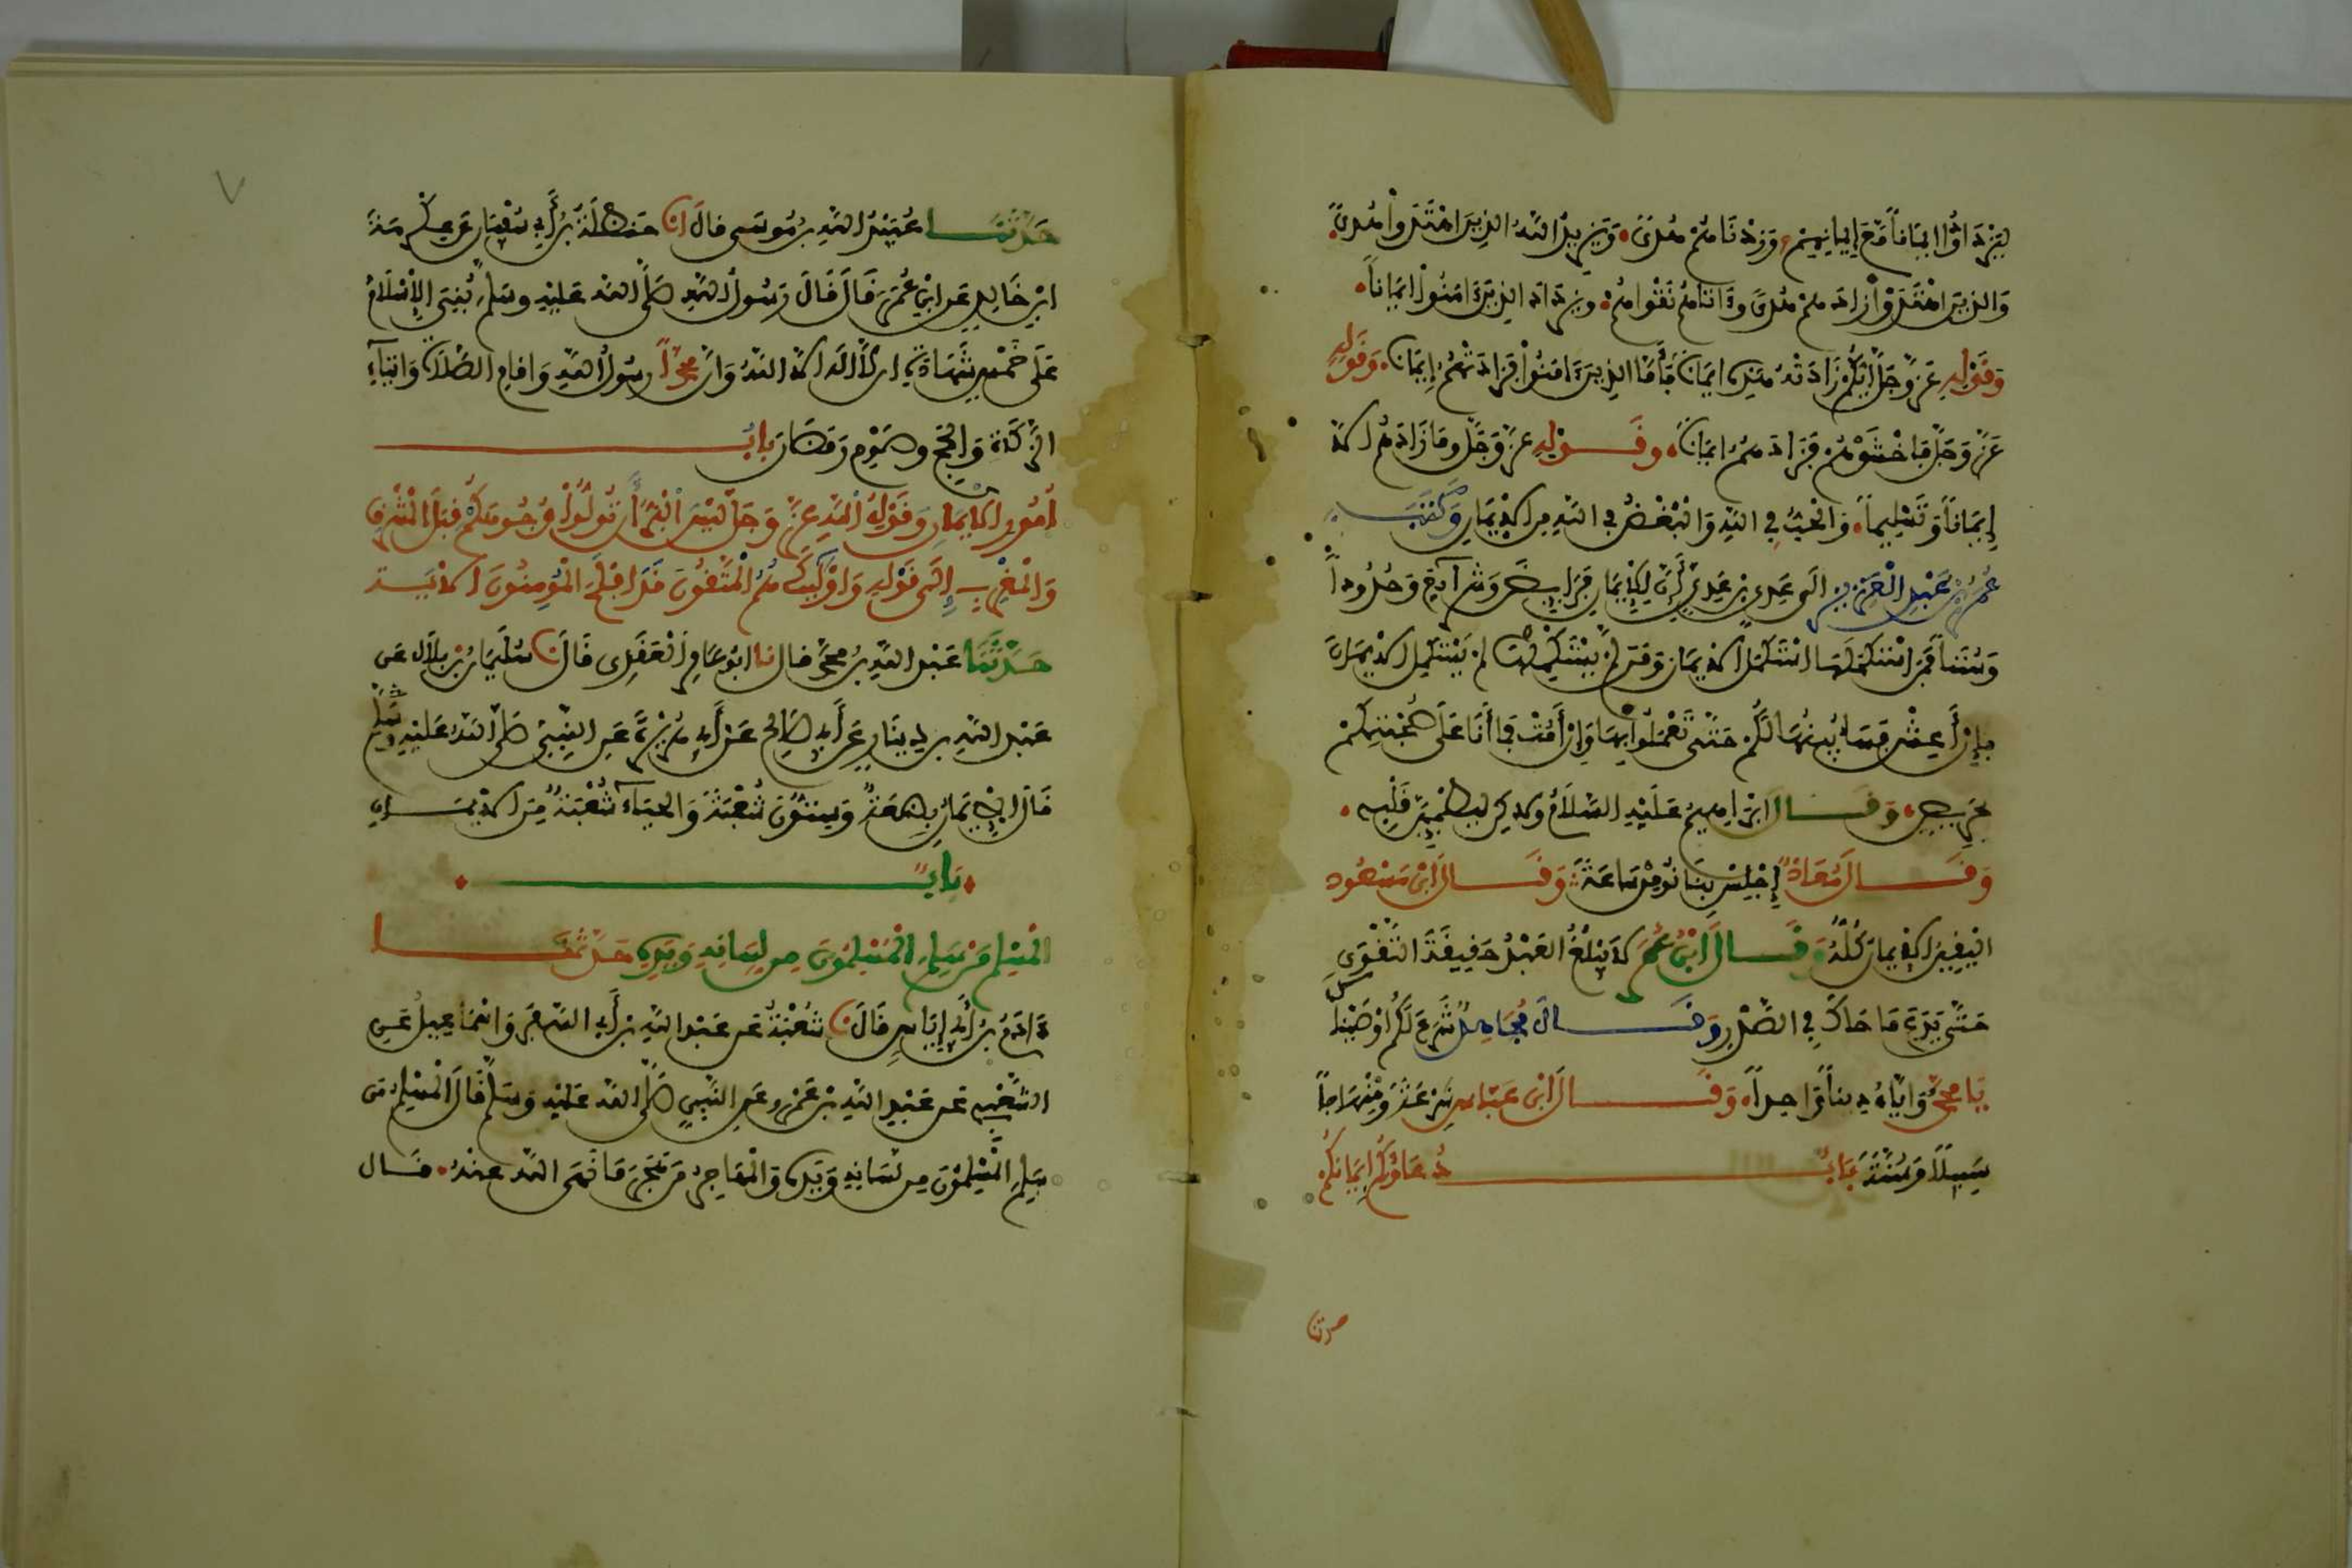 لِيَزْدَادُوا إِيمَاناً مَّعَ إِيمَانِهِمْ وَزِدْنَاهُمْ هُدىً وَيَزِيدُ اللَّهُ الذِينَ اهْتَدَوْا هُدىً
وَالذِينَ اهْتَدَوْا زَادَهُمْ هُدىً وَءَاتَاهُمْ تَقْوَاهُمْ وَيَزْدَادَ الذِينَ ءَامَنُوا إِيمَاناً
وَقَوْلِهِ عَزَّ وَجَلَّ أَيُّكُمْ زَادَتْهُ هَذِهِ إِيمَاناً فَأَمَّا الذِينَ ءَامَنُوا فَزَادَتْهُمْ إِيمَاناً وَقَوْلِهِ
عَزَّ وَجَلَّ فَاخْشَوْهُمْ فَزَادَهُمْ إِيمَاناً وَقَوْلِهِ عَزَّ وَجَلَّ وَمَا زَادَهُمْ إِلَّا
إِيمَاناً وَتَسْلِيماً وَالْحُبُّ فِي اللَّهِ وَالْبُغْضُ فِي اللَّهِ مِنَ الْإِيمَانِ وَكَتَبَ
عُمَرُ بْنُ عَبْدِ الْعَزِيزِ إِلَى عَدِيِّ بْنِ عَدِيٍّ أَنَّ لِلْإِيمَانِ فَرَايِضَ وَشَرَايِعَ وَحُدُوداً
وَسُنَناً فَمَنِ اسْتَكْمَلَهَا اسْتَكْمَلَ الْإِيمَانَ وَمَن لَّمْ يَسْتَكْمِلْهَا لَمْ يَسْتَكْمِلِ الْإِيمَانَ
فَإِنْ أَعِشْ فَسَأُبَيِّنُهَا لَكُمْ حَتَّى تَعْمَلُوا بِهَا وَإِنْ أَمُتْ فَمَا أَنَا عَلَى صُحْبَتِكُمْ
بِحَرِيصٍ وَقَالَ إِبْرَاهِيمُ عَلَيْهِ السَّلَامُ وَلَكِن لِّيَطْمَئِنَّ قَلْبِي
وَقَالَ مُعَاذٌ إِجْلِسْ بِنَا نُومِنْ سَاعَةً وَقَالَ ابْنُ مَسْعُودٍ
الْيَقِينُ الْإِيمَانُ كُلُّهُ وَقَالَ ابْنُ عُمَرَ لَا يَبْلُغُ الْعَبْدُ حَقِيقَةَ التَّقْوَى
حَتَّى يَدَعَ مَا حَاكَ فِي الصَّدْرِ وَقَالَ مُجَاهِدٌ شَرَعَ لَكُمْ أَوْصَيْنَاكَ
يَا مُحَمَّدُ وَإِيَّاهُ دِيناً وَاحِداً وَقَالَ ابْنُ عَبَّاسٍ شِرْعَةً وَمِنْهَاجاً
سَبِيلاً وَسُنَّةً بَابٌ دُعَاؤُكُمْ إِيمَانُكُمْ
حدثنا
٧
حَدَّثَنَا عُبَيْدُ اللَّهِ بْنُ مُوسَى قَالَ انا حَنْظَلَةُ بْنُ أَبِي سُفْيَانَ عَنْ عِكْرِمَةَ
ابْنِ خَالِدٍ عَنِ ابْنِ عُمَرَ قَالَ قَالَ رَسُولُ اللَّهِ صَلَّى اللَّهُ عَلَيْهِ وَسَلَّمَ بُنِيَ الْإِسْلَامُ
عَلَى خَمْسٍ شَهَادَةِ أَن لَّا إِلَهَ إِلَّا اللَّهُ وَأَنَّ مُحَمَّداً رَسُولُ اللَّهِ وَإِقَامِ الصَّلَاةِ وَإِيتَاءِ
الزَّكَاةِ وَالْحَجِّ وَصَوْمِ رَمَضَانَ بَابُ
أُمُورِ الْإِيمَانِ وَقَوْلِ اللَّهِ عَزَّ وَجَلَّ لَيْسَ الْبِرُّ أَن تُوَلُّوا وُجُوهَكُمْ قِبَلَ الْمَشْرِقِ
وَالْمَغْرِبِ إِلَى قَوْلِهِ وَأُوْلَئِكَ هُمُ الْمُتَّقُونَ قَدْ أَفْلَحَ الْمُؤمِنُونَ الْآيَة
حَدَّثَنَا عَبْدُ اللَّهِ بْنُ مُحَمَّدٍ قَالَ نَا أَبُو عَامِرٍ الْعَقَدِي قَالَ نَا سُلَيْمَانُ بْنُ بِلَالٍ عَنْ
عَبْدِ اللَّهِ بْنِ دِينَارٍ عَنْ أَبِي صَالِحٍ عَنْ أَبِي هُرَيْرَةَ عَنِ النَّبِيِّ صَلَّى اللَّهُ عَلَيْهِ وَسَلَّمَ
قَالَ الْإِيمَانُ بِضْعَةٌ وَسِتُّونَ شُعْبَةً وَالْحَيَاءُ شُعْبَةٌ مِنَ الْإِيمَانِ
بَابٌ
الْمُسْلِمُ مَنْ سَلِمَ الْمُسْلِمُونَ مِن لِّسَانِهِ وَيَدِهِ حَدَّثَنَا
ءَادَمُ بْنُ أَبِي إِيَاسٍ قَالَ نَا شُعْبَةُ عَنْ عَبْدِ اللَّهِ بْنِ أَبِي السَّفَرِ وَإِسْمَاعِيلُ عَنِ
الشَّعْبِي عَنْ عَبْدِ اللَّهِ بْنِ عَمْرٍو عَنِ النَّبِيِّ صَلَّى اللَّهُ عَلَيْهِ وَسَلَّمَ قَالَ الْمُسْلِمُ مَن
سَلِمَ الْمُسْلِمُونَ مِن لِّسَانِهِ وَيَدِهِ وَالْمُهَاجِرُ مَن هَجَرَ مَا نَهَى اللَّهُ عَنْهُ قَالَ